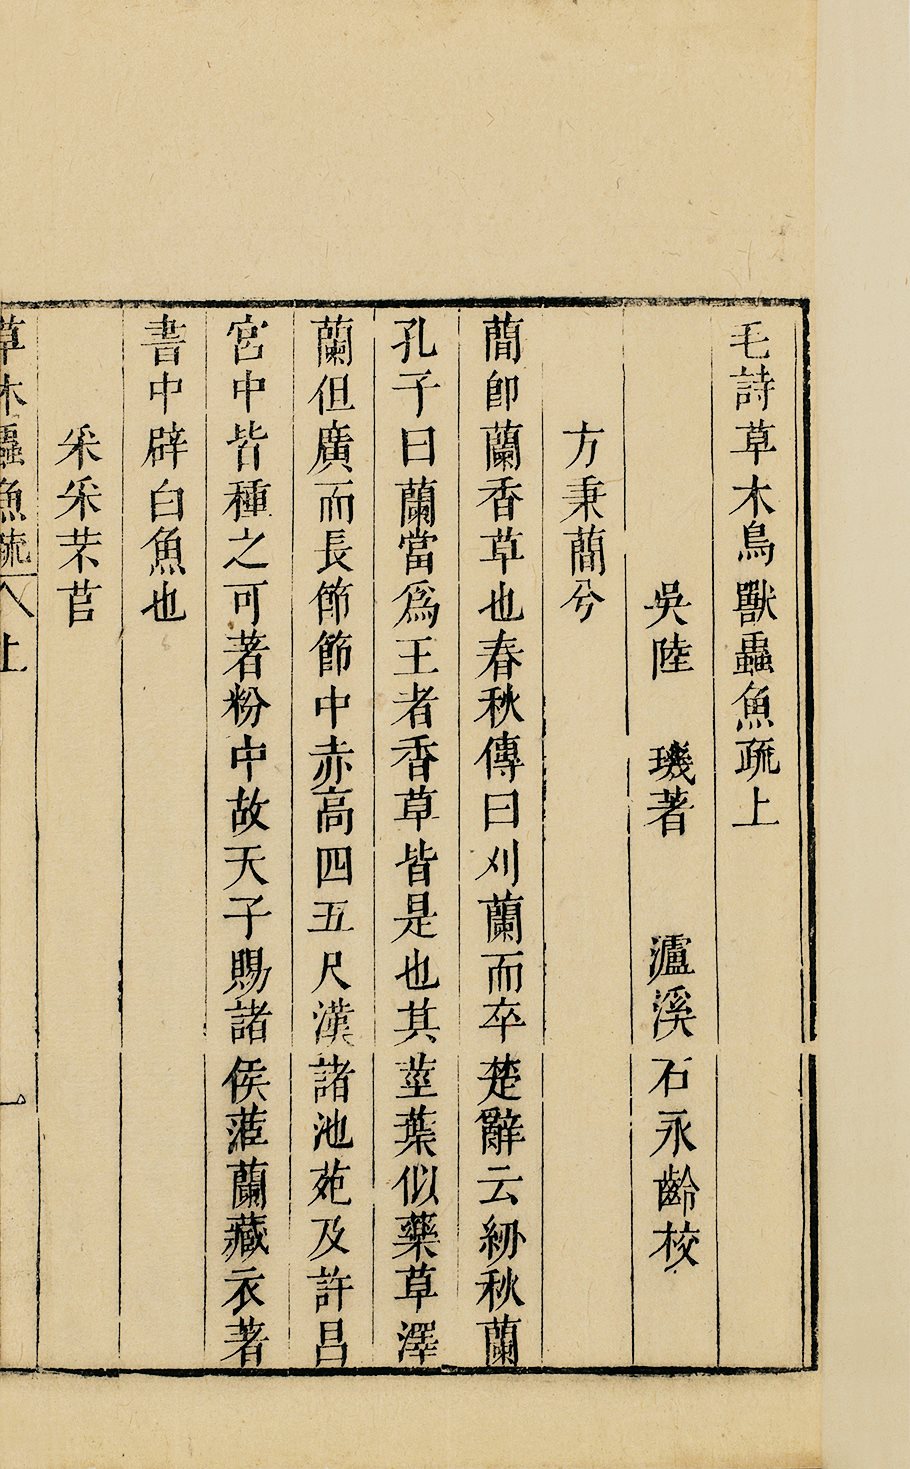 毛詩草木鳥獸蟲魚疏上
吳陸 璣著 瀘溪石永齡校
方秉蕑兮
蕑卽蘭香草也春秋傳曰刈蘭而卒楚辭云紉秋蘭
孔子曰蘭當爲王者香草皆是也其莖葉似藥草澤
蘭但廣而長節節中赤高四五尺漢諸池苑及許昌
宮中皆種之可著粉中故天子賜諸侯茝蘭藏衣著
書中辟白魚也
采采芣苢
草木蟲魚疏 上 一